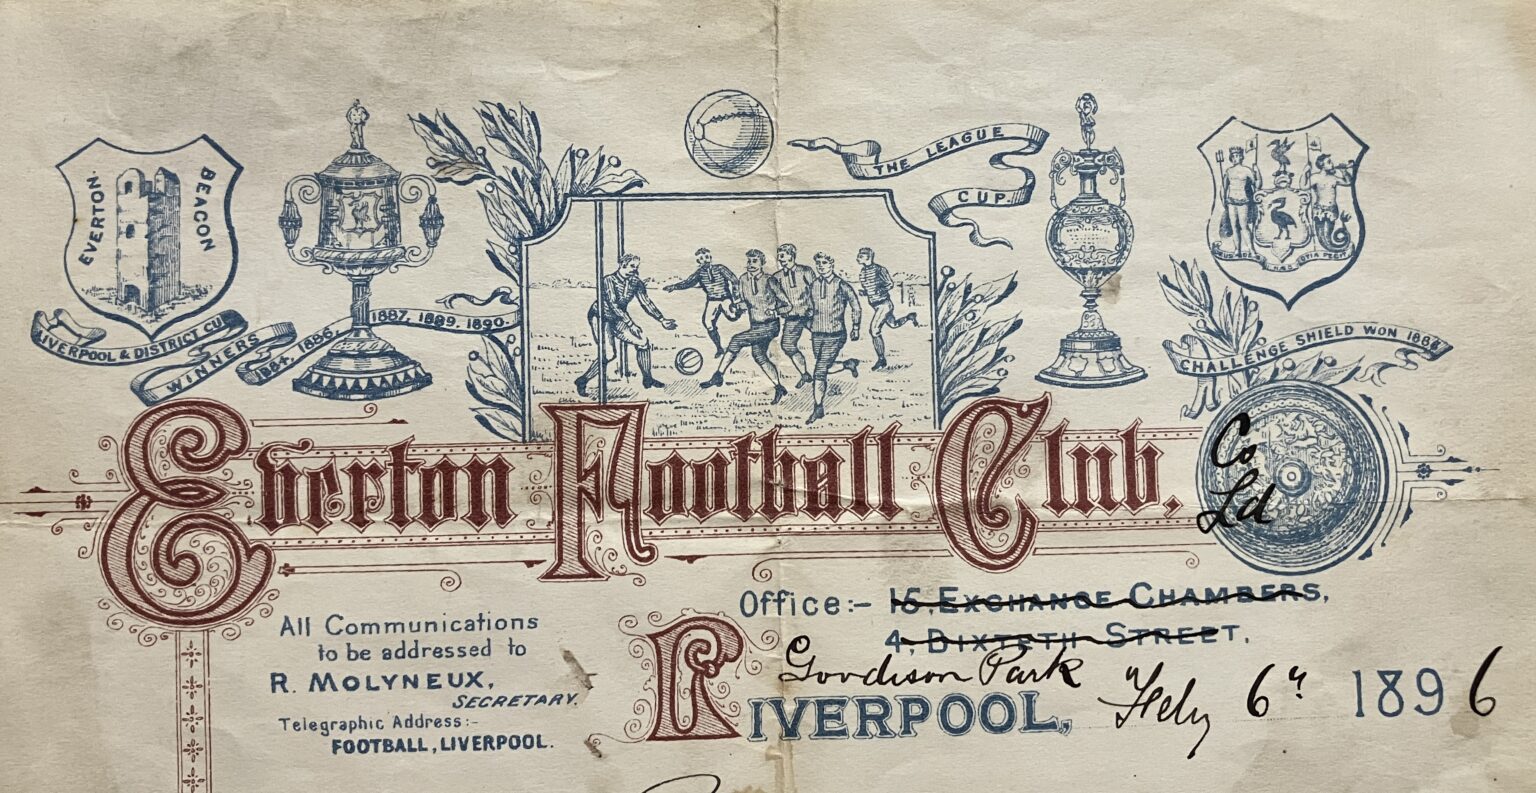 EVERTON BEACON
LIVERPOOL & DISTRICT CU
WINNERS
1884, 1886,
1887, 1889, 1890.
THE LEAGUE
CUP.
CHALLENGE SHIELD WON 1886
Everton Football Club, Co Ld
Office:- 15, EXCHANGE CHAMBERS,
4, BIXTETH STREET,
Goodison Park
LIVERPOOL, Feby 6th 1896
All Communications
to be addressed to
R. MOLYNEUX,
SECRETARY.
Telegraphic Address:-
FOOTBALL, LIVERPOOL.